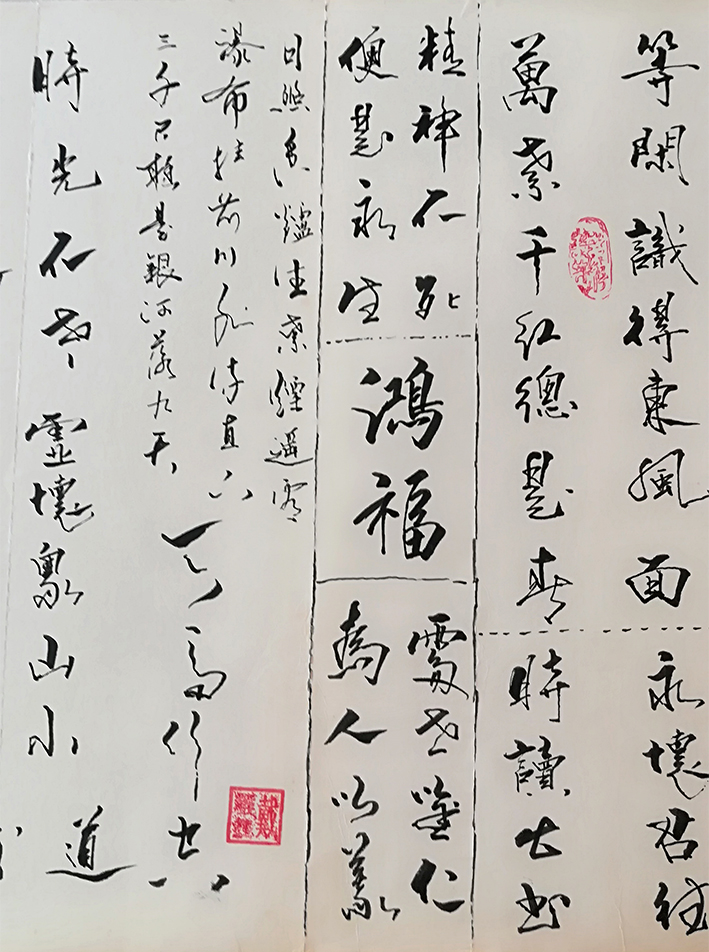 等閑識得東風面
萬紫千紅總是春
永懷
時讀古書
精神不死
便是永生
鴻福
處世唯仁
為人以義
日照香爐生紫煙遙看
瀑布挂前川飛流直下
三千尺疑是銀河落九天
天馬行空
時光不老
懷象山小
道